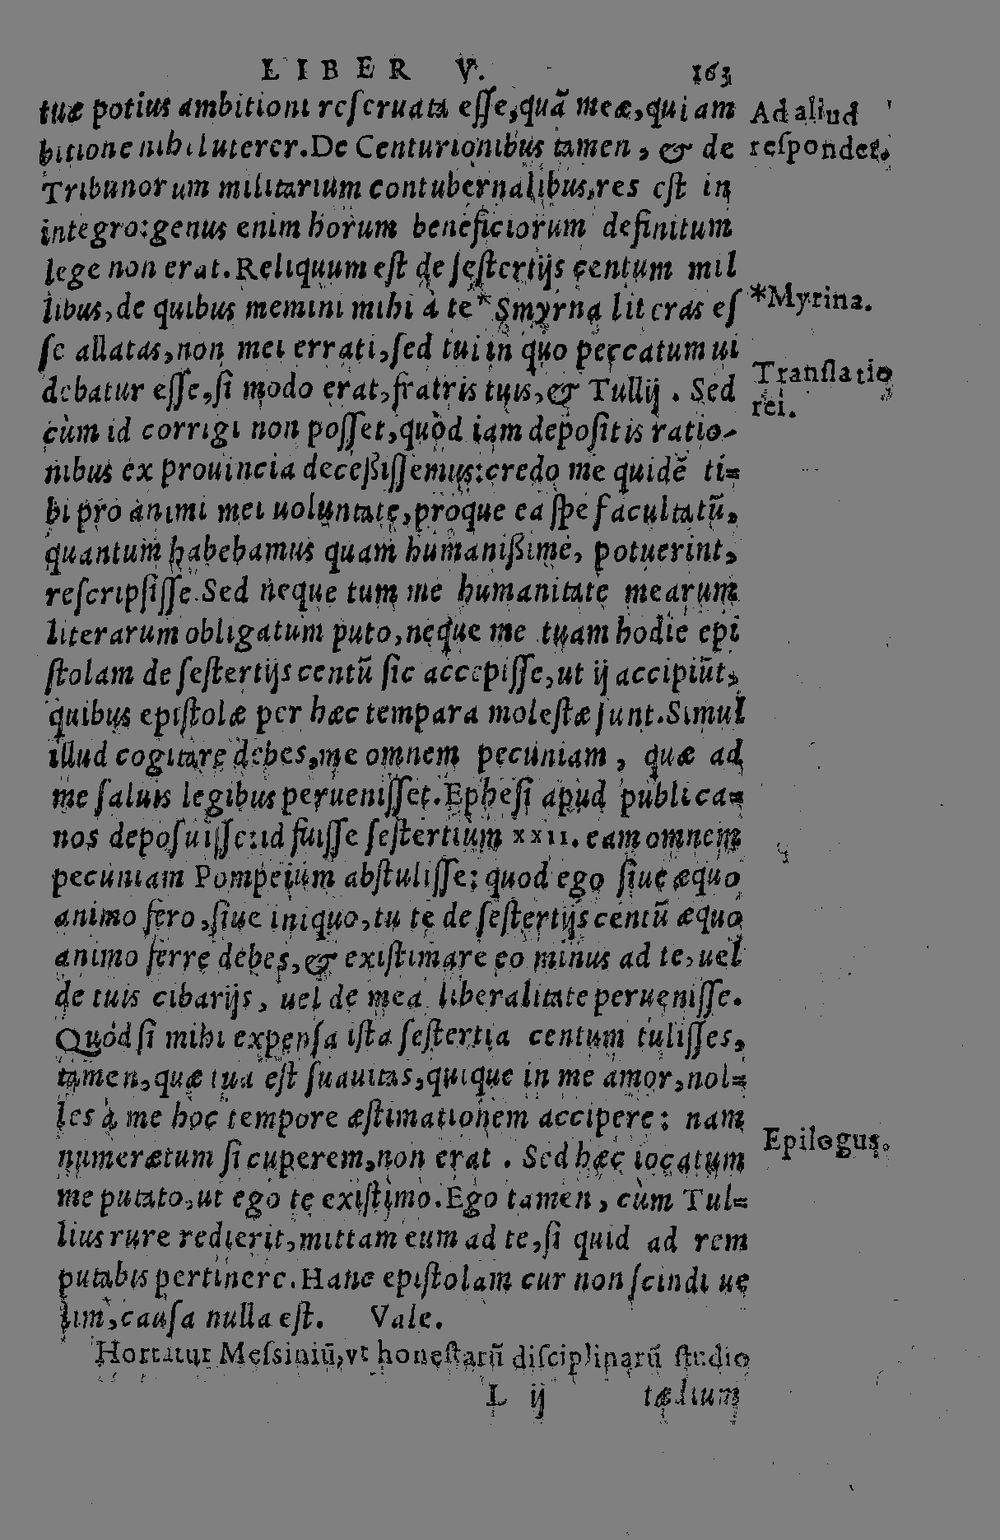 LIBER V. 163
tuæ potius ambitioni reseruata esse, quã meæ, qui am
bitione nihil uterer. De Centurionibus tamen, & de
Tribunorum militarium contubernalibus, res est in
integro: genus enim horum beneficiorum definitum
lege non erat. Reliquum est de sestertijs centum mil
libus, de quibus memini mihi à te *Smyrna literas es
se allatas, non mei errati, sed tui in quo peccatum ui
debatur esse, si modo erat, fratris tuis, & Tullij. Sed
cùm id corrigi non posset, quòd iam depositis ratio-
nibus ex prouincia deceßissemus: credo me quidẽ ti=
bi pro animi mei uoluntate, proque ea spe facultatũ,
quantum habebamus quam humanißime, potuerint,
rescripsisse. Sed neque tum me humanitate mearum
literarum obligatum puto, neque me tuam hodie epi
stolam de sestertijs centũ sic accepisse, ut ij accipiũt,
quibus epistolæ per hæc tempara molestæ sunt. Simul
illud cogitare debes, me omnem pecuniam, quæ ad
me saluis legibus peruenisset. Ephesi apud publica=
nos deposuisse: id fuisse sestertium xxii. eam omnem
pecuniam Pompeium abstulisse; quod ego siue æquo
animo fero, siue iniquo, tu te de sestertijs centũ æquo
animo ferre debes, & existimare eo minus ad te, uel
de tuis cibarijs, uel de mea liberalitate peruenisse.
Quòd si mihi expensa ista sestertia centum tulisses,
tamen, quæ tua est suauitas, quique in me amor, nol=
les à me hoc tempore æstimationem accipere: nam
numerætum si cuperem, non erat. Sed hæc iocatum
me putato, ut ego te existimo. Ego tamen, cùm Tul=
lius rure redierit, mittam eum ad te, si quid ad rem
putabis pertinere. Hanc epistolam cur non scindi ue
lim, causa nulla est. Vale.
Hortatur Messiniũ, vt honestarũ disciplinarũ studio
L ij tædium
Ad aliud
respondet.
*Myrina.
Translatio
rei.
Epilogus.